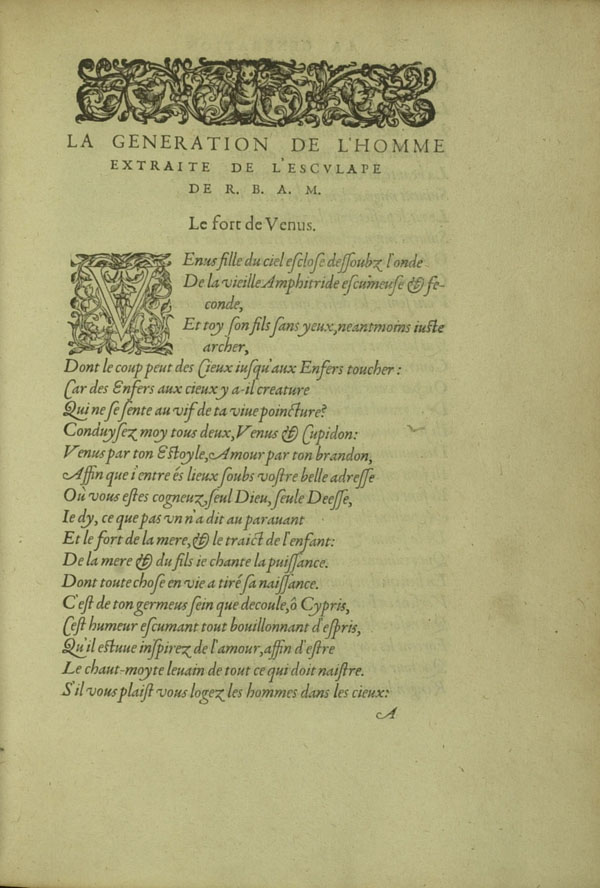 LA GENERATION DE L'HOMME
EXTRAITE DE L'ESCVLAPE
DE R. B. A. M.
Le fort de Venus.
VEnus fille du ciel esclose dessoubz l'onde
De la vieille Amphitride escumeuse & fe-
conde,
Et toy son fils sans yeux, neantmoins iuste
archer,
Dont le coup peut des Cieux iusqu'aux Enfers toucher:
Car des Enfers aux cieux y a-il creature
Qui ne se sente au vif de ta viue poincture?
Conduysez moy tous deux, Venus & Cupidon:
Venus par ton Estoyle, Amour par ton brandon,
Affin que i'entre és lieux soubs vostre belle adresse
Où vous estes cogneuz, seul Dieu, seule Deesse,
Ie dy, ce que pas vn n'a dit au parauant
Et le fort de la mere, & le traict de l'enfant:
De la mere & du fils ie chante la puissance.
Dont toute chose en vie a tiré sa naissance.
C'est de ton germeus sein que decoule, ô Cypris,
Cest humeur escumant tout bouillonnant d'espris,
Qu'il estuue inspirez de l'amour, affin d'estre
Le chaut-moyte leuain de tout ce qui doit naistre.
S'il vous plaist vous logez les hommes dans les cieux:
A